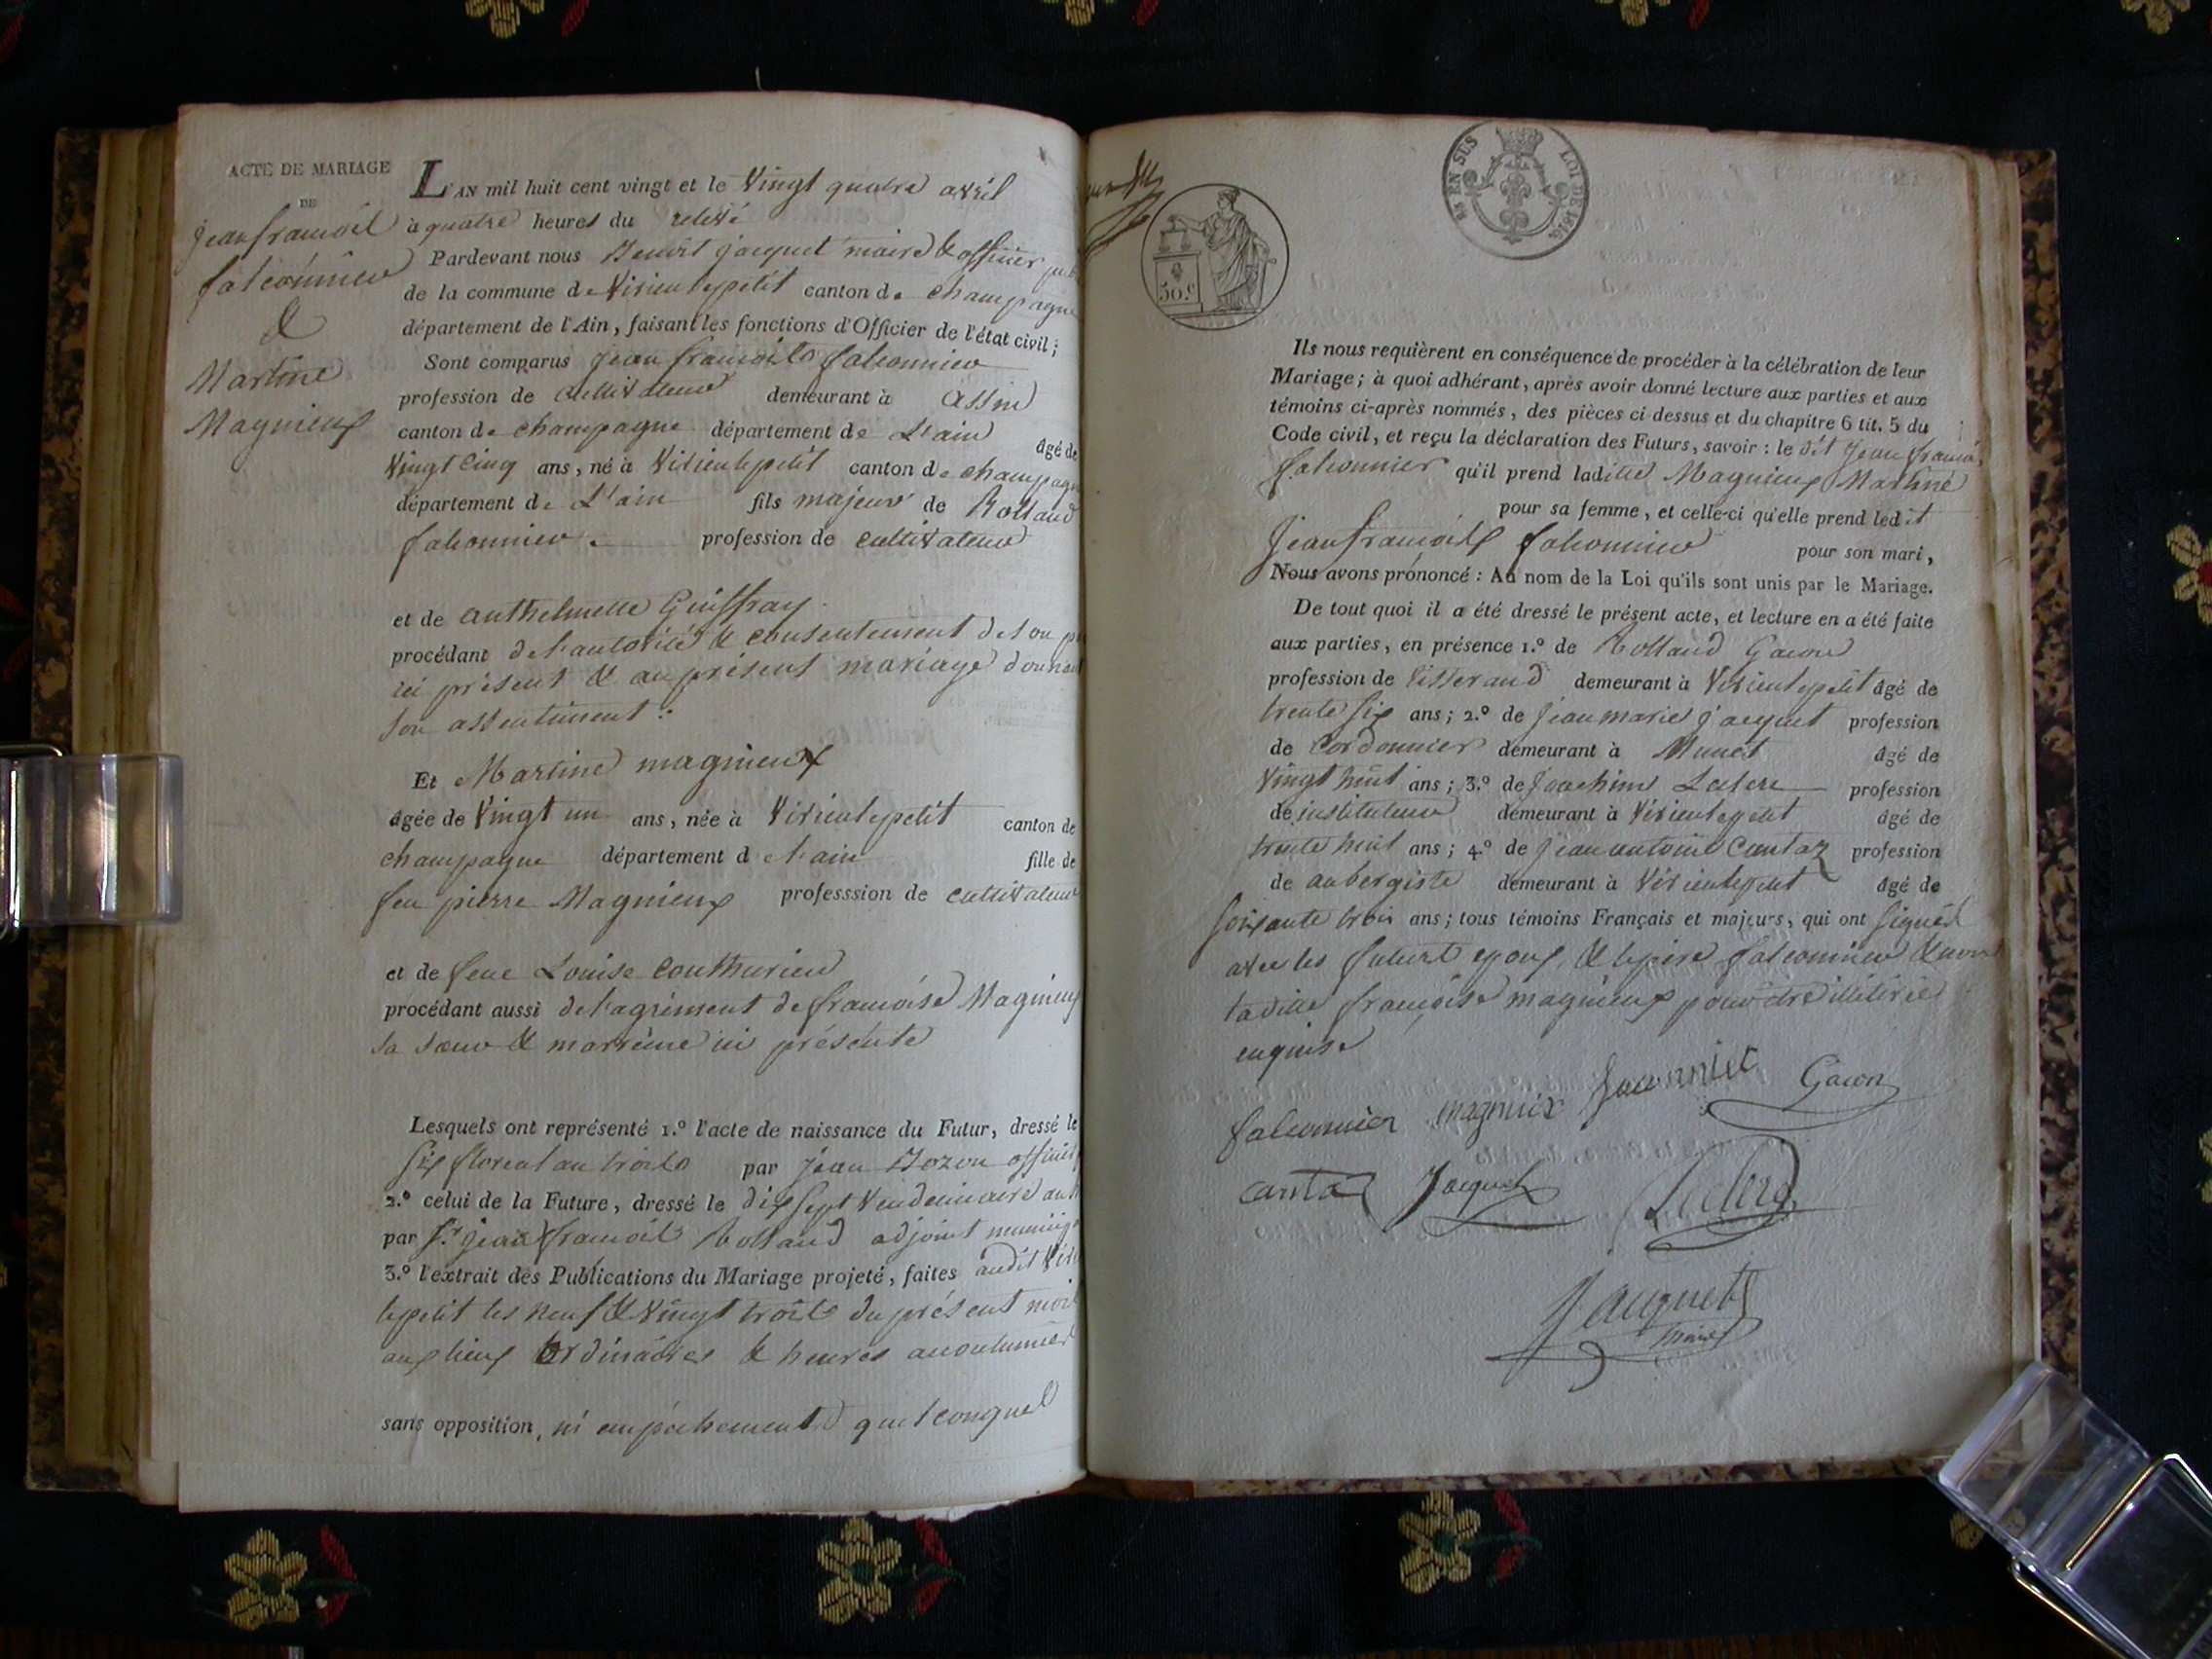 ACTE DE MARIAGE
DE
jean francois
falconnier
&
Martine
Magnieux
L'AN mil huit cent vingt et le Vingt quatre avril
à quatre heures du relevé
Pardevant nous Benoit jacquet maire & officier pub
de la commune de Virieulepetit canton de champagne
département de l'Ain, faisant les fonctions d'Officier de l'état civil;
Sont comparus jean francois falconnier
profession de cultivateur demeurant à assin
canton de champagne département de L'ain âgé de
Vingt cinq ans, né à Virieulepetit canton de champagne
département de L'ain fils majeur de Rolland
falconnier. profession de cultivateur
et de anthelmette Guiffray
procédant de l'autorité & consentement de son pè
ici présent & au présent mariage donnant
son assentiment :
Et Martine magnieux
âgée de Vingt un ans, née à Virieulepetit canton de
champagne département d l'ain fille de
feu pierre Magnieux professsion de cultivateur
et de feue Louise Couthurier
procédant aussi de l'agrément de francoise Magnieux
sa sœur & marreine ici présente
Lesquels ont représenté 1.º l'acte de naissance du Futur, dressé le
six floreal an trois par jean Bozon officier
2.º celui de la Future, dressé le dix sept Vendemiaire an
par Sr. jean francois Rolland adjoint municip
3.º l'extrait des Publications du Mariage projeté, faites audit Virieu
lepetit les neuf & Vingt trois du présent mois
aux lieux ordinaires & heures accoutumées
sans opposition, ni empéchement quelconque
50.c
EN SUS
LOI DE 1816
Ils nous requièrent en conséquence de procéder à la célébration de leur
Mariage; à quoi adhérant, après avoir donné lecture aux parties et aux
témoins ci-après nommés, des pièces ci-dessus et du chapitre 6 tit. 5 du
Code civil, et reçu la déclaration des Futurs, savoir : le dit Jean francois
falconnier qu'il prend ladite Magnieux Martine
pour sa femme, et celle-ci qu'elle prend ledit
Jean francois falconnier pour son mari,
Nous avons prononcé : Au nom de la Loi qu'ils sont unis par le Mariage.
De tout quoi il a été dressé le présent acte, et lecture en a été faite
aux parties, en présence 1.º de Rolland Gacon
profession de tisserand demeurant à Virieulepetit âgé de
trente six ans; 2.º de jean marie jacquet profession
de Cordonnier demeurant à Munet âgé de
Vingt huit ans; 3.º de joachim Leclerc profession
de instituteur demeurant à Virieulepetit âgé de
trente huit ans; 4.º de jean antoine Cantaz profession
de aubergiste demeurant à Virieulepetit âgé de
soixante trois ans; tous témoins Français et majeurs, qui ont signés
avec les futurs epoux, & le père falconnier & non
ladite francoise magnieux pour être illitirée
enquise
falconnier magnieux Gacon
Cantaz Jacquet Leclerc
Jacquet
maire